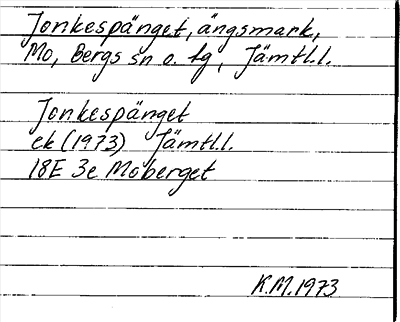 Jonkespänget, ängsmark,
Mo, Bergs sn o. tg, Jämtl.l.
Jonkespänget
ek (1973) Jämtl.l.
18E 3e Moberget
K.M. 1973